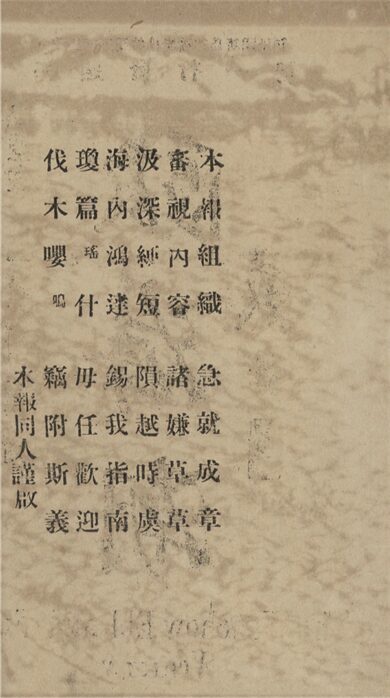 本報組織 急就成章
審視內容 諸嫌草草
汲深綆短 隕越時虞
海內鴻達 錫我指南
瓊篇瑤什 毋任歡迎
伐木嚶鳴 竊附斯義
本報同人謹啟